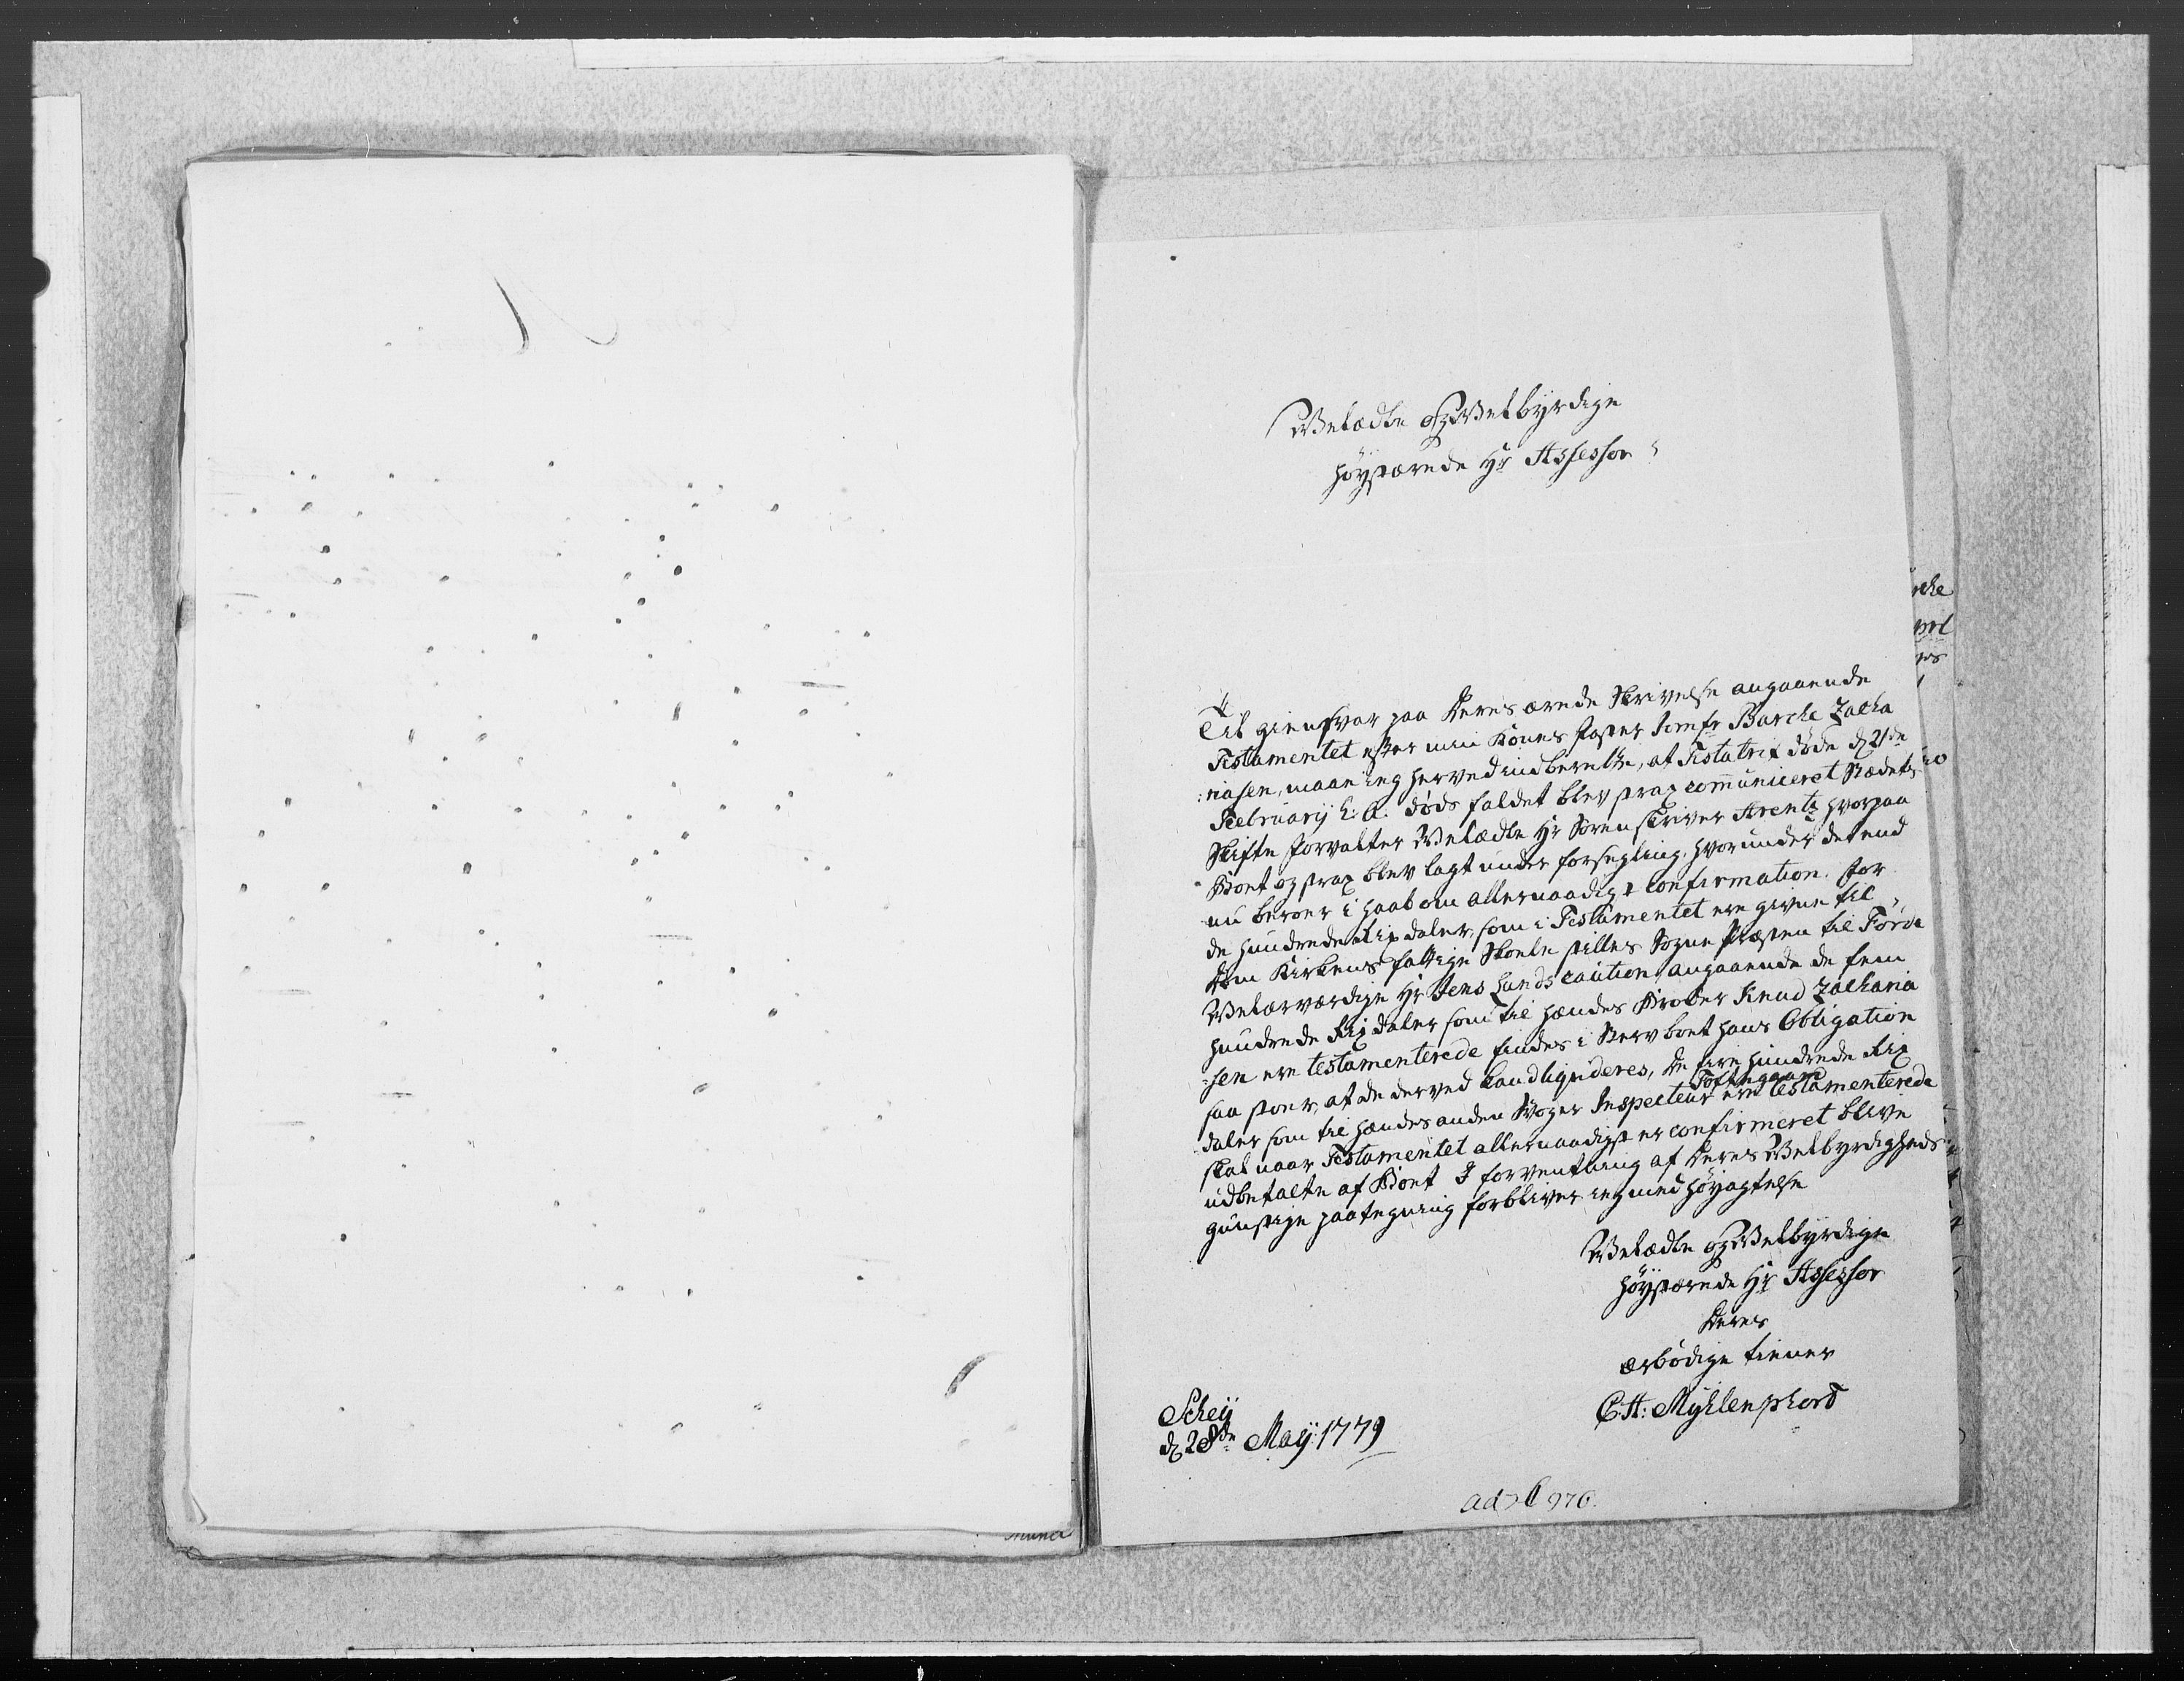 Velædle og Velbyrdige
Høystærede Hr Assessor
Til giensvar paa Deres ærede Skrivelse angaaende
Testamentet efter min Kones Faster Jomfr Barche Zacha
riasen, maae ieg herved indberette, at Testatrix døde d 21de
Februarij h: a: døds faldet blev strax communiceret Stædets
Skifte forvalter Velædle Hr Sorenskriver Arentz hvorpaa
Boet og strax blev lagt under forsegling, hvorunder det end
nu beroer i haab om allernaadigst confirmation. For
de hundrede Rixdaler, som i Testamentet ere givne til
Kirkens fattige Skoele stilles Sogne Præsten til Førde
Velærværdige Hr Jens Lunds caution, angaaende de fem
hundrede Rixdaler som til hendes Broder Knud Zacharia
sen ere testamenterede findes i Sterv boet hans Obligation
saa stoer, at de derved kand liqvideres, De fire hundrede Rix
Toftegaard
daler som til hendes anden Svoger Inspecteur ere testamenterede
skal naar Testamentet allernaadigst er confirmeret blive
udbetalte af Boet I forventning af Deres Velbyrdigheds
gunstige paategning forbliver ieg med høyagtelse
Velædle og Velbyrdige
Høystærede Hr Assessor
Deres
ærbødige tiener
C. A: Myhlenphord
Schey
d 28de Maij 1779
ad N 976.